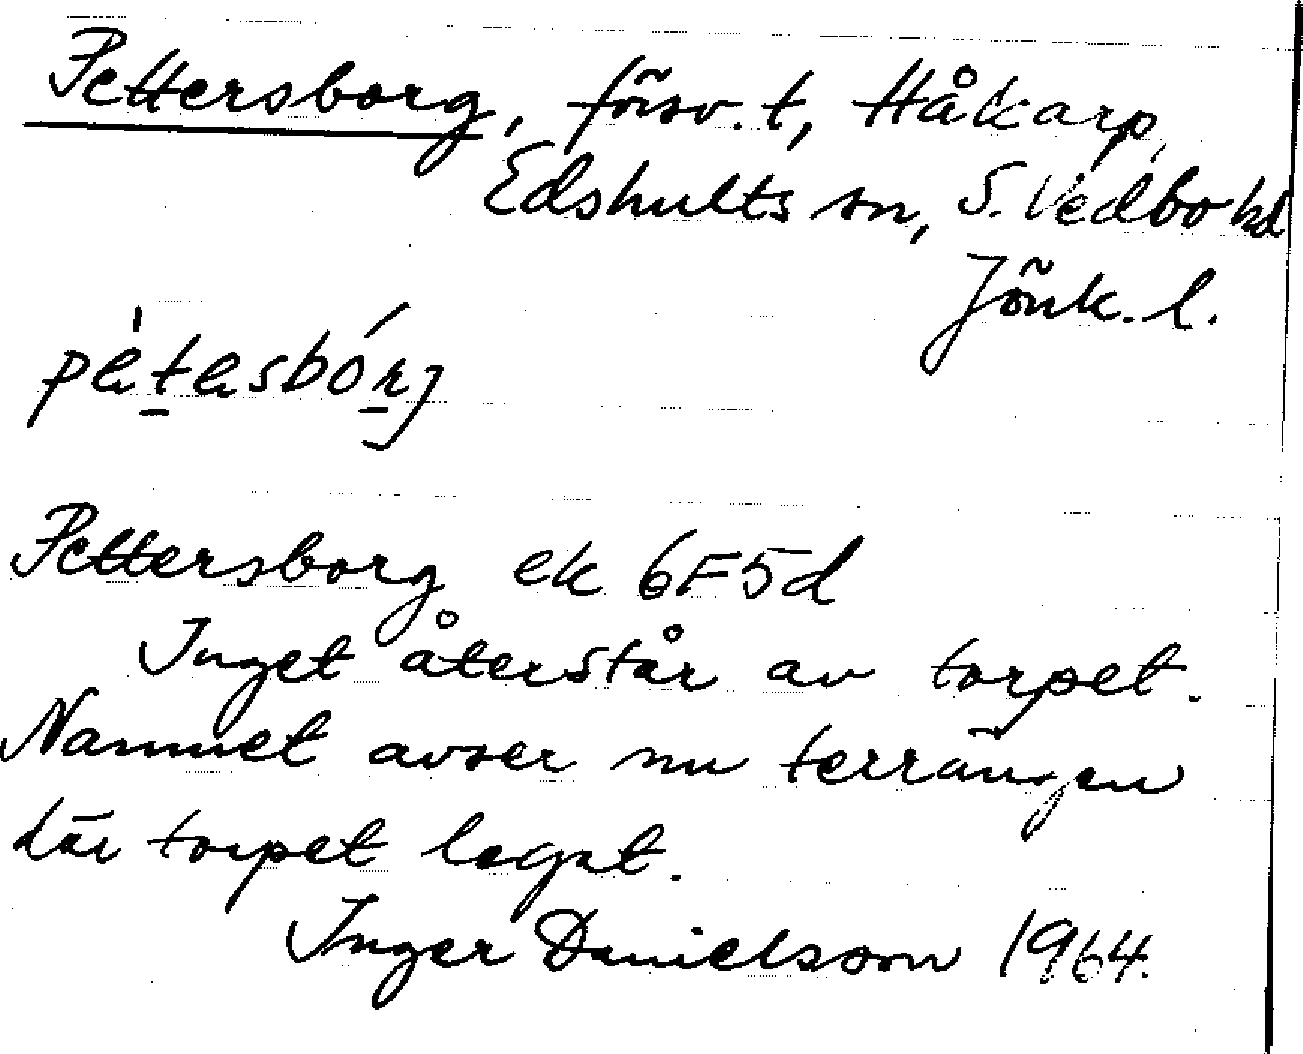 Pettersborg, försv. t, Håkarp,
Edshults sn, S. Vedbo hd
Jönk. l.
Pettersborg ek 6F5d
Inget återstår av torpet.
Namnet avser nu terrängen
där torpet legat.
Inger Danielsson 1964.